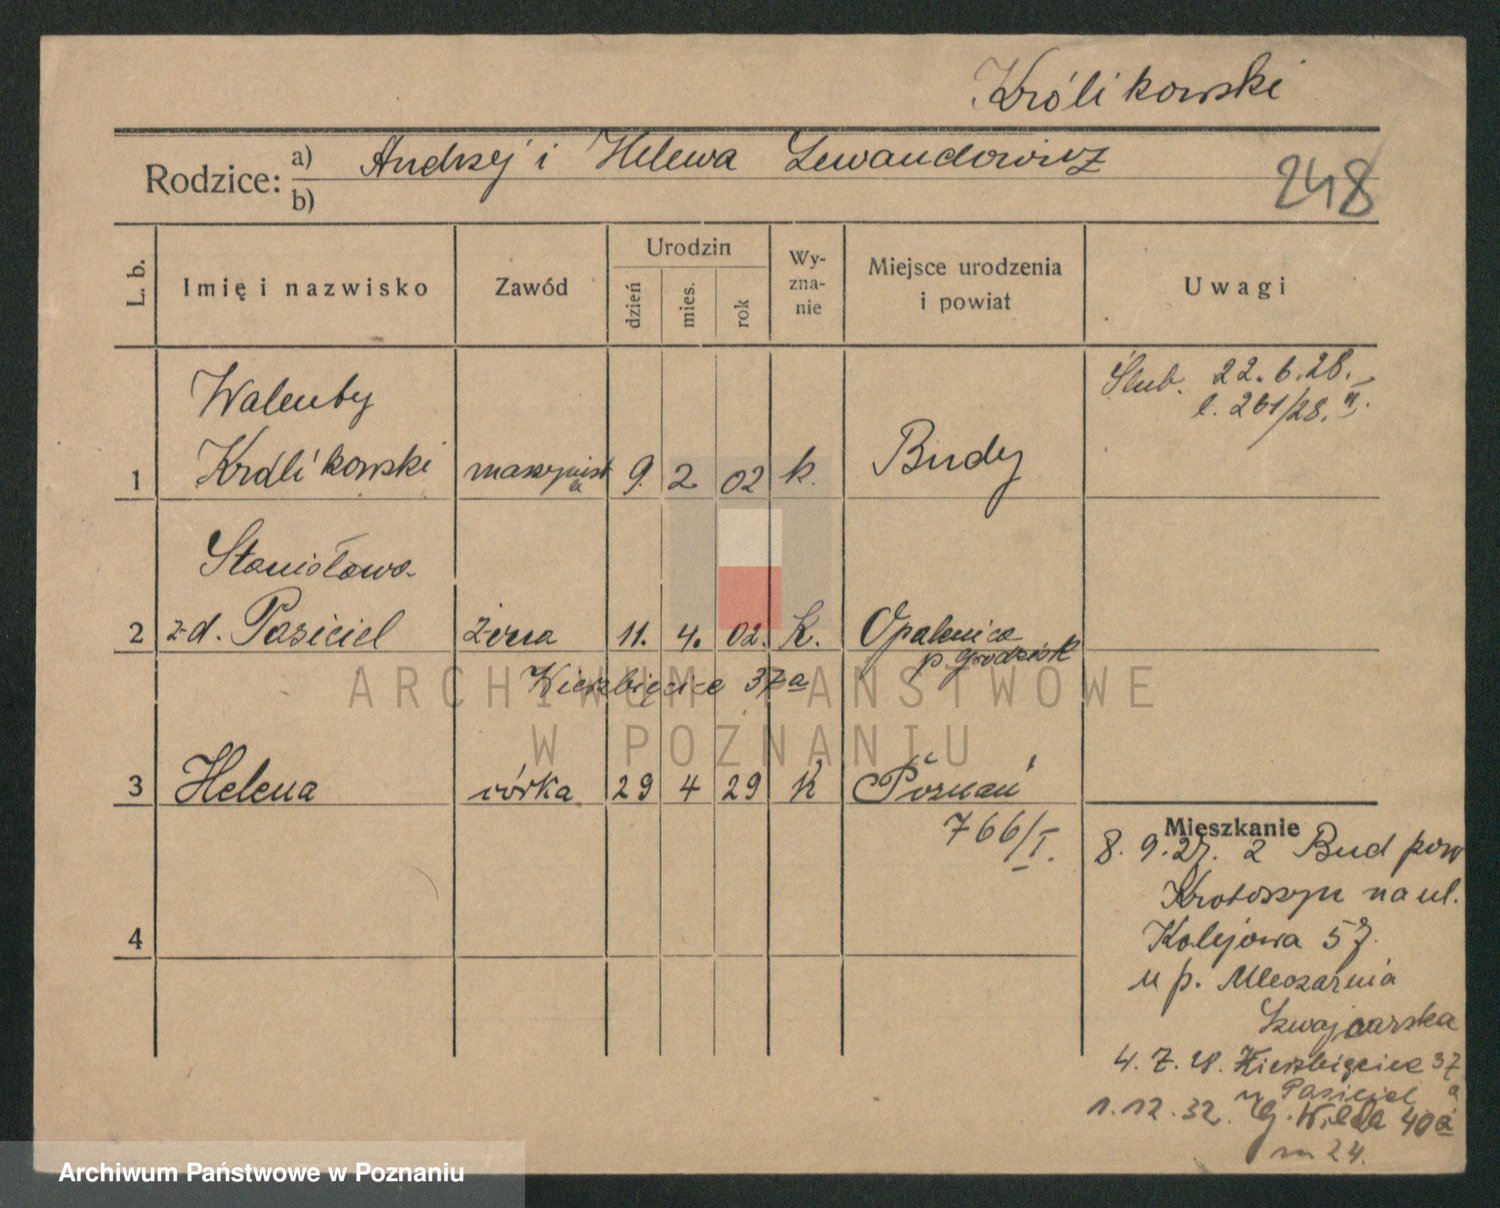 Królikowski
Rodzice: a) Andrzej i Helena Lewandowicz
b)
248
L. b.
Imię i nazwisko
Zawód
Urodzin
dzień
mies.
rok
Wy-
zna-
nie
Miejsce urodzenia
i powiat
Uwagi
Walenty
1 Królikowski maszynista 9. 2 02 k. Budy
Ślub. 22.6.28.
l. 261/28. II.
Stanisława
2 z d. Pasiciel żona 11. 4. 02. k. Opalenica
p. Grodzisk
Kierzbięcice 37a
3 Helena córka 29 4 29 k Poznań
766/I.
4
Mieszkanie
8. 9. 27. z Bud pow
Krotoszyn na ul.
Kolejowa 57.
u p. Mleczarnia
Szwajcarska
4. 7. 28. Kierzbięcice 37
a
u Pasiciel
1. 12. 32. G. Wilda 40a
m 24.
ARCHIWUM PAŃSTWOWE
W POZNANIU
Archiwum Państwowe w Poznaniu